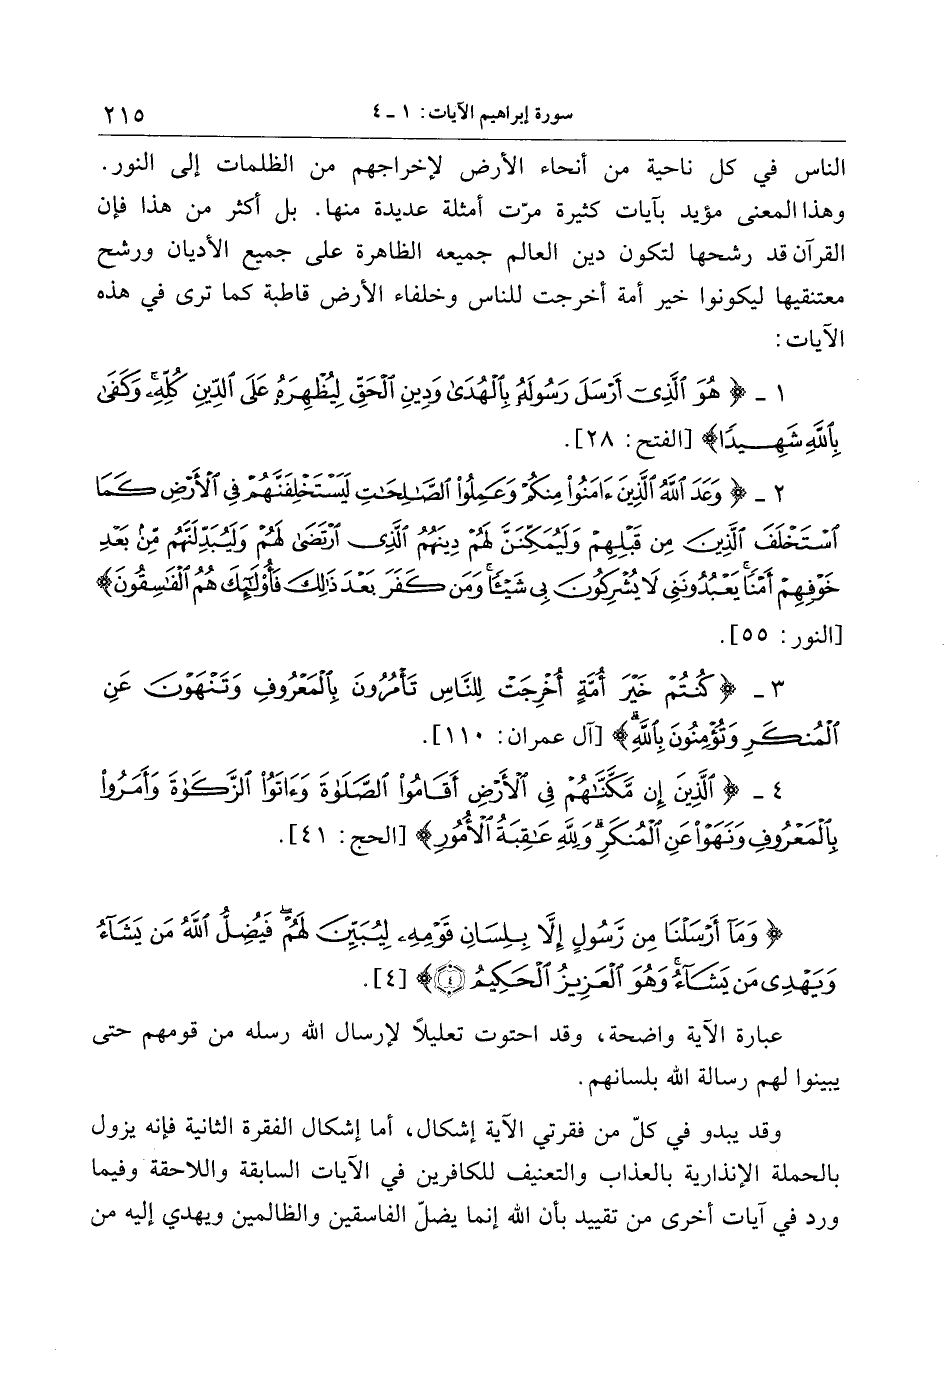 سورة إبراهيم الآيات: ١ ـ ٤ ٢١٥
الناس في كل ناحية من أنحاء الأرض لإخراجهم من الظلمات إلى النور.
وهذا المعنى مؤيد بآيات كثيرة مرّت أمثلة عديدة منها. بل أكثر من هذا فإن
القرآن قد رشحها لتكون دين العالم جميعه الظاهرة على جميع الأديان ورشح
معتنقيها ليكونوا خير أمة أخرجت للناس وخلفاء الأرض قاطبة كما ترى في هذه
الآيات:
١ ـ ﴿ هُوَ ٱلَّذِىٓ أَرْسَلَ رَسُولَهُۥ بِٱلْهُدَىٰ وَدِينِ ٱلْحَقِّ لِيُظْهِرَهُۥ عَلَى ٱلدِّينِ كُلِّهِۦۚ وَكَفَىٰ
بِٱللَّهِ شَهِيدًا﴾ [الفتح: ٢٨].
٢ ـ ﴿ وَعَدَ ٱللَّهُ ٱلَّذِينَ ءَامَنُوا۟ مِنكُمْ وَعَمِلُوا۟ ٱلصَّٰلِحَٰتِ لَيَسْتَخْلِفَنَّهُمْ فِى ٱلْأَرْضِ كَمَا
ٱسْتَخْلَفَ ٱلَّذِينَ مِن قَبْلِهِمْ وَلَيُمَكِّنَنَّ لَهُمْ دِينَهُمُ ٱلَّذِى ٱرْتَضَىٰ لَهُمْ وَلَيُبَدِّلَنَّهُم مِّنۢ بَعْدِ
خَوْفِهِمْ أَمْنًاۚ يَعْبُدُونَنِى لَا يُشْرِكُونَ بِى شَيْـًٔاۚ وَمَن كَفَرَ بَعْدَ ذَٰلِكَ فَأُو۟لَٰٓئِكَ هُمُ ٱلْفَٰسِقُونَ﴾
[النور: ٥٥].
٣ ـ ﴿ كُنتُمْ خَيْرَ أُمَّةٍ أُخْرِجَتْ لِلنَّاسِ تَأْمُرُونَ بِٱلْمَعْرُوفِ وَتَنْهَوْنَ عَنِ
ٱلْمُنكَرِ وَتُؤْمِنُونَ بِٱللَّهِۗ﴾ [آل عمران: ١١٠].
٤ ـ ﴿ ٱلَّذِينَ إِن مَّكَّنَّٰهُمْ فِى ٱلْأَرْضِ أَقَامُوا۟ ٱلصَّلَوٰةَ وَءَاتَوُا۟ ٱلزَّكَوٰةَ وَأَمَرُوا۟
بِٱلْمَعْرُوفِ وَنَهَوْا۟ عَنِ ٱلْمُنكَرِۗ وَلِلَّهِ عَٰقِبَةُ ٱلْأُمُورِ﴾ [الحج: ٤١].
﴿ وَمَآ أَرْسَلْنَا مِن رَّسُولٍ إِلَّا بِلِسَانِ قَوْمِهِۦ لِيُبَيِّنَ لَهُمْۖ فَيُضِلُّ ٱللَّهُ مَن يَشَآءُ
وَيَهْدِى مَن يَشَآءُۚ وَهُوَ ٱلْعَزِيزُ ٱلْحَكِيمُ ٤﴾ [٤].
عبارة الآية واضحة، وقد احتوت تعليلاً لإرسال الله رسله من قومهم حتى
يبينوا لهم رسالة الله بلسانهم.
وقد يبدو في كلّ من فقرتي الآية إشكال، أما إشكال الفقرة الثانية فإنه يزول
بالحملة الإنذارية بالعذاب والتعنيف للكافرين في الآيات السابقة واللاحقة وفيما
ورد في آيات أخرى من تقييد بأن الله إنما يضلّ الفاسقين والظالمين ويهدي إليه من